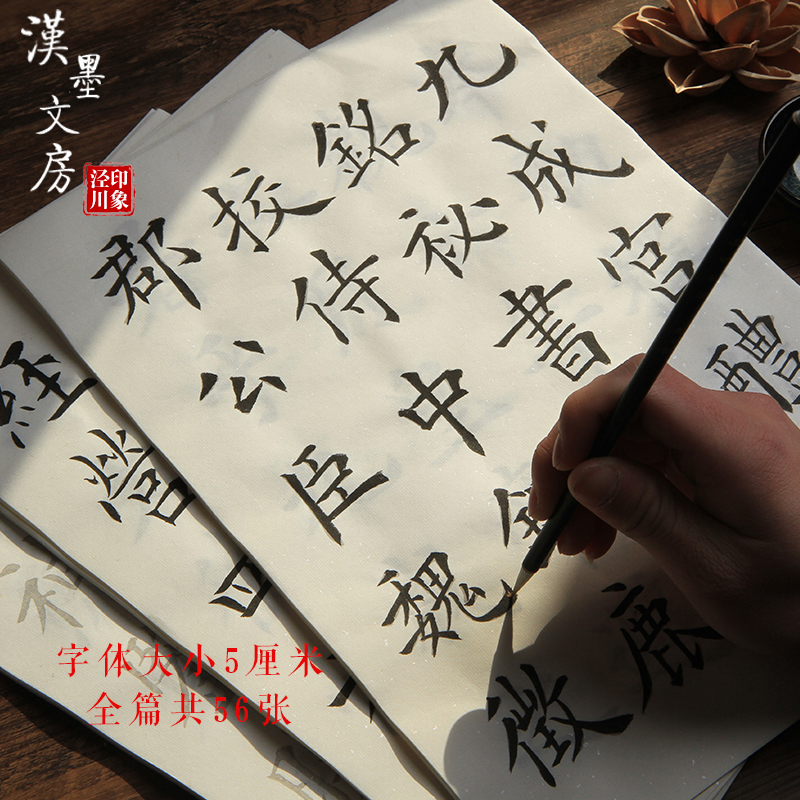 漢墨文房
印象
泾川
九成宫醴
銘祕書
挍侍中
鹿
郡公臣魏徵
經營四
字体大小5厘米
全篇共56张